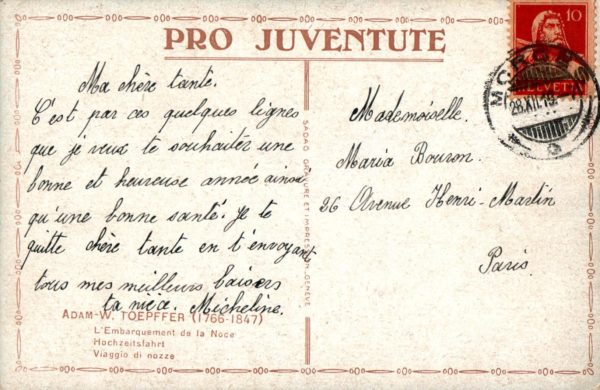 PRO JUVENTUTE
Ma chère tante.
C'est par ces quelques lignes
que je veux te souhaiter une
bonne et heureuse année ainsi
qu'une bonne santé. Je te
quitte chère tante en t'envoyant
tous mes meilleurs baisers
ta nièce. Micheline.
ADAM-W. TOEPFFER (1766-1847)
L'Embarquement de la Noce
Hochzeitsfahrt
Viaggio di nozze
SADAG GRAVURE ET IMPRESSION, GENÈVE
10
HELVETIA
MORGES
28.XII.19
Mademoiselle.
Maria Bouron.
36 Avenue Henri-Martin
Paris.